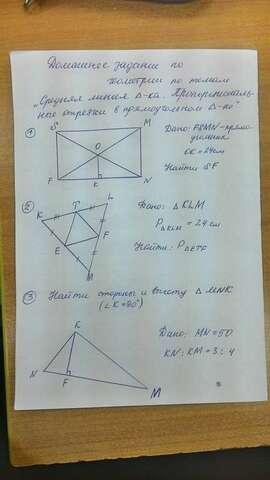 Домашнее задание по
геометрии по темам
„Средняя линия Δ-ка. Пропорциональ-
ные отрезки в прямоугольном Δ-ке"
① S M Дано: FSMN - прямо-
угольник
O
OK = 24см
F K N Найти SF
② K T L Дано: ΔKLM
P ΔKLM = 24 см
E F Найти: P ΔETF
M
③ Найти стороны и высоту ΔMNK
(∠K = 90°)
K
Дано: MN = 50
N F M KN : KM = 3 : 4